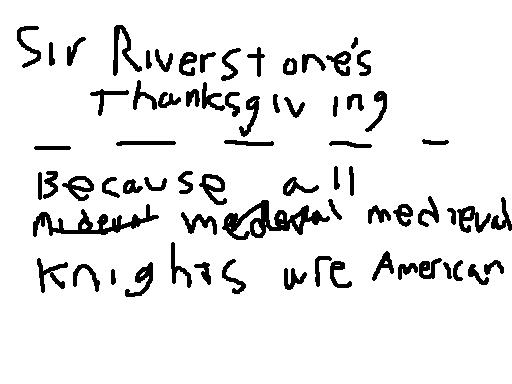 Sir Riverstone's
Thanksgiving
Because all
medieval
Knights are American